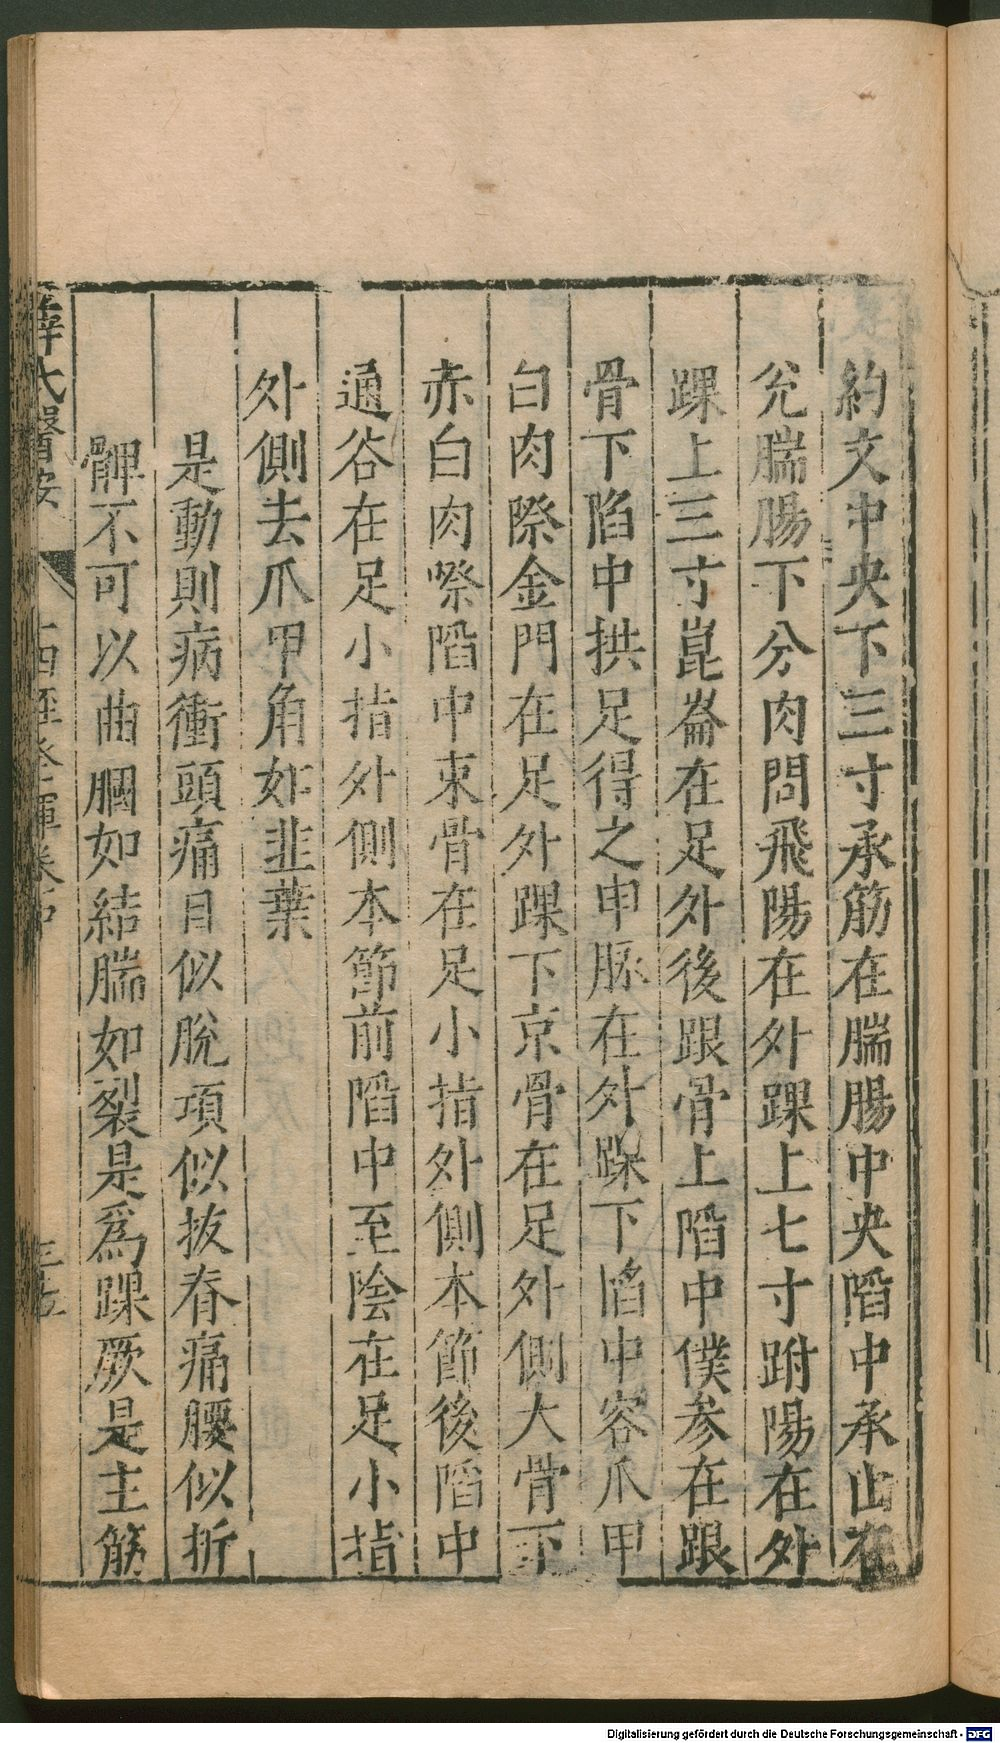 約文中央下三寸承筋在腨腸中央陷中承山在
兊腨腸下分肉間飛陽在外踝上七寸跗陽在外
踝上三寸崑崙在足外後跟骨上陷中僕參在跟
骨下陷中拱足得之申脉在外踝下陷中容爪甲
白肉際金門在足外踝下京骨在足外側大骨下
赤白肉際陷中束骨在足小指外側本節後陷中
通谷在足小指外側本節前陷中至陰在足小指
外側去爪甲角如韭葉
是動則病衝頭痛目似脫項似拔脊痛腰似折
髀不可以曲膕如結腨如裂是爲踝厥是主筋
薛氏醫按 十四經發揮卷中
Digitalisierung gefördert durch die Deutsche Forschungsgemeinschaft - DFG